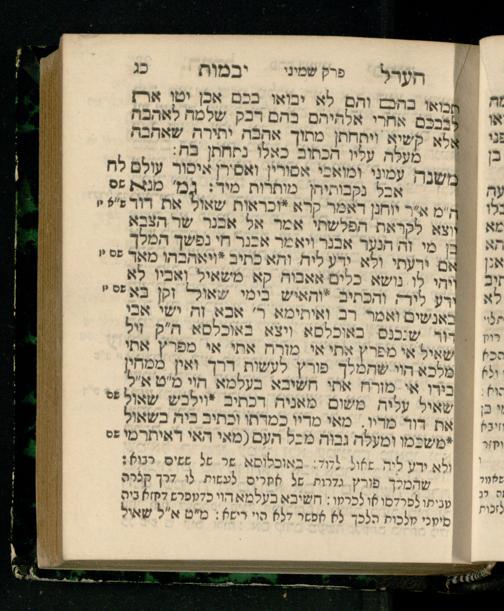 הערל פרק שמיני יבמות כג
תבואו בהם והם לא יבואו בכם אכן יטו את
לבבכם אחרי אלהיהם בהם דבק שלמה לאהבה
אלא קשיא ויתחתן מתוך אהבה יתירה שאהבה
מעלה עליו הכתוב כאלו נתחתן בה:
משנה עמוני ומואבי אסורין ואיסורן איסור עולם לח
אבל נקבותיהן מותרות מיד: גמ׳ מנא שם
ה״מ א״ר יוחנן דאמר קרא *וכראות שאול את דוד ש״א יז
יוצא לקראת הפלשתי אמר אל אבנר שר הצבא
בן מי זה הנער אבנר ויאמר אבנר חי נפשך המלך
אם ידעתי ולא ידע ליה והא כתיב *ויאהבהו מאד שם יו
ויהי לו נושא כלים אאבוה קא משאיל ואביו לא
ידע ליה והכתיב *והאיש בימי שאול זקן בא שם יז
באנשים ואמר רב ואיתימא ר׳ אבא זה ישי אבי
דוד שנכנס באוכלסא ויצא באוכלסא ה״ק זיל
שאיל אי מפרץ אתי אי מזרח אתי אי מפרץ אתי
מלכא הוי שהמלך פורץ לעשות דרך ואין ממחין
בידו אי מזרח אתי חשיבא בעלמא הוי מ״ט א״ל
שאיל עליה משום מאניה דכתיב *וילבש שאול שם
את דוד מדיו. מאי מדיו כמדתו וכתיב ביה בשאול
*משכמו ומעלה גבוה מכל העם (מאי האי דאיתרמי שם
ולא ידע ליה שאול לדוד: באוכלוסא שר של ששים רבוא:
שהמלך פורץ גדרות של אחרים לעשות לו דרך
לפרדסו או לכרמו: חשיבא בעלמא הוי ביה
סימני מלכות הלכך לא אפשר דלא הוי רישא: מ״ט א״ל שאול